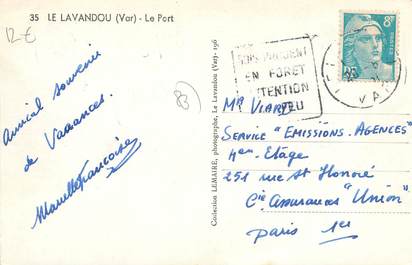 35 LE LAVANDOU (Var) - Le Port
12 €
Amical souvenir
de Vacances.
83
Collection LEMAIRE, photographe, Le Lavandou (Var) - 196
EN FORET
ATTENTION
FEU
8F
VAR
Mr
Service "Emissions. Agences"
4em Etage
251 rue St Honoré
Cie Assurances "Union"
Paris 1er